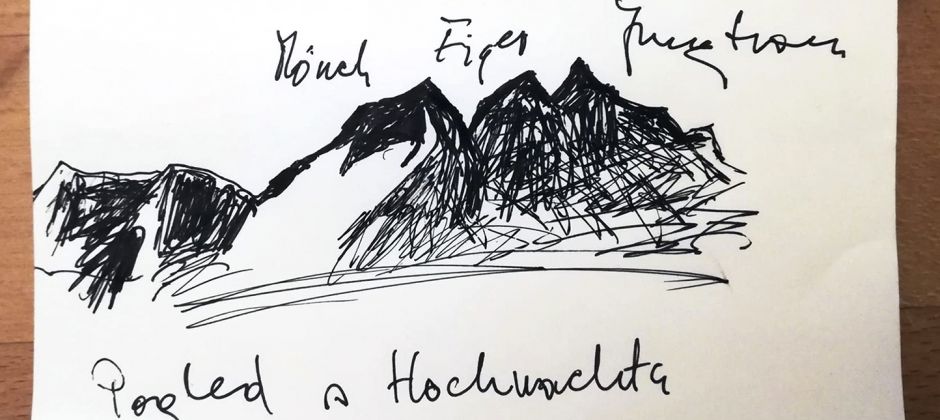 Mönch Eiger Jungfrau
Pogled s Hochwachta